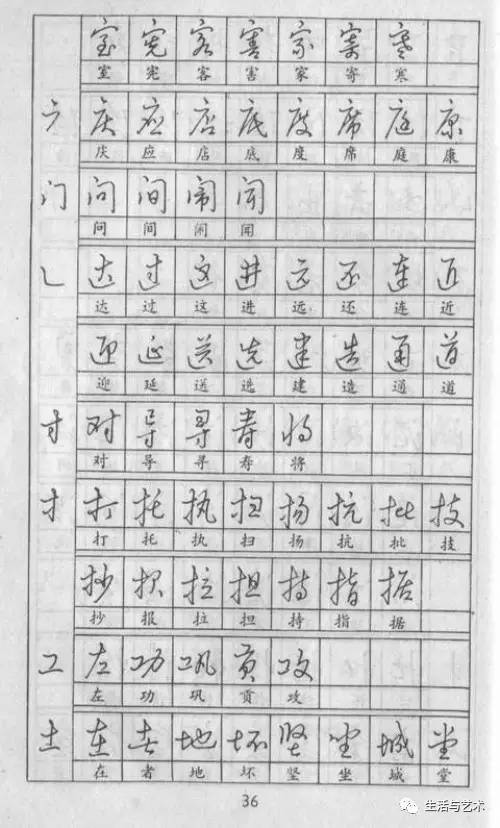 室 宪 客 害 家 寄 寒
室 宪 客 害 家 寄 寒
广 庆 应 店 底 度 席 庭 康
庆 应 店 底 度 席 庭 康
门 问 间 闹 闻
问 间 闹 闻
辶 达 过 这 进 远 还 连 近
达 过 这 进 远 还 连 近
迎 延 送 选 建 造 通 道
迎 延 送 选 建 造 通 道
寸 对 导 寻 寿 将
对 导 寻 寿 将
扌 打 托 执 扫 扬 抗 批 技
打 托 执 扫 扬 抗 批 技
抄 报 拉 担 持 指 据
抄 报 拉 担 持 指 据
工 左 功 巩 贡 攻
左 功 巩 贡 攻
土 在 者 地 坏 坚 坐 城 堂
在 者 地 坏 坚 坐 城 堂
36
生活与艺术